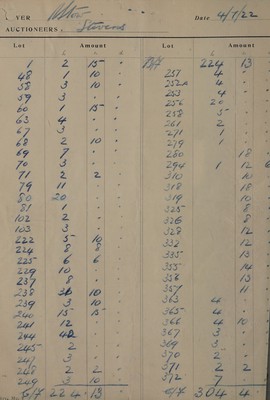 YER
Date 4/7/22
AUCTIONEERS. Stevens
Lot Amount Lot Amount
1 2 15 -
48 1 10 -
58 3 10 -
59 3 - -
60 1 15 -
63 4 - -
67 3 - -
68 2 10 -
69 7 - -
70 3 - -
71 2 2 -
79 11 - -
80 20 - -
81 1 - -
102 2 - -
103 3 - -
222 5 10 -
224 8 8 -
225 6 6 -
229 10 - -
237 8 - -
238 10 -
239 3 10 -
240 15 15 -
241 12 - -
244 - -
245 2 - -
247 3 - -
248 2 2 -
249 3 10 -
C/F 224 13
B/F 224 13
257 4 -
252A 4 -
253 4 -
256 20 -
258 5 -
261 2 -
271 1 -
279 1 -
280 18 -
294 1 12 6
310 10 -
318 18 -
319 10 -
325 8 -
326 8 -
328 12 -
332 12 -
335 13 -
355 14 -
356 13 -
357 11 -
363 4 -
365 4 -
366 4 10 -
367 3 -
369 3 -
370 2 -
371 2 2 -
372 7 -
C/F 304 4